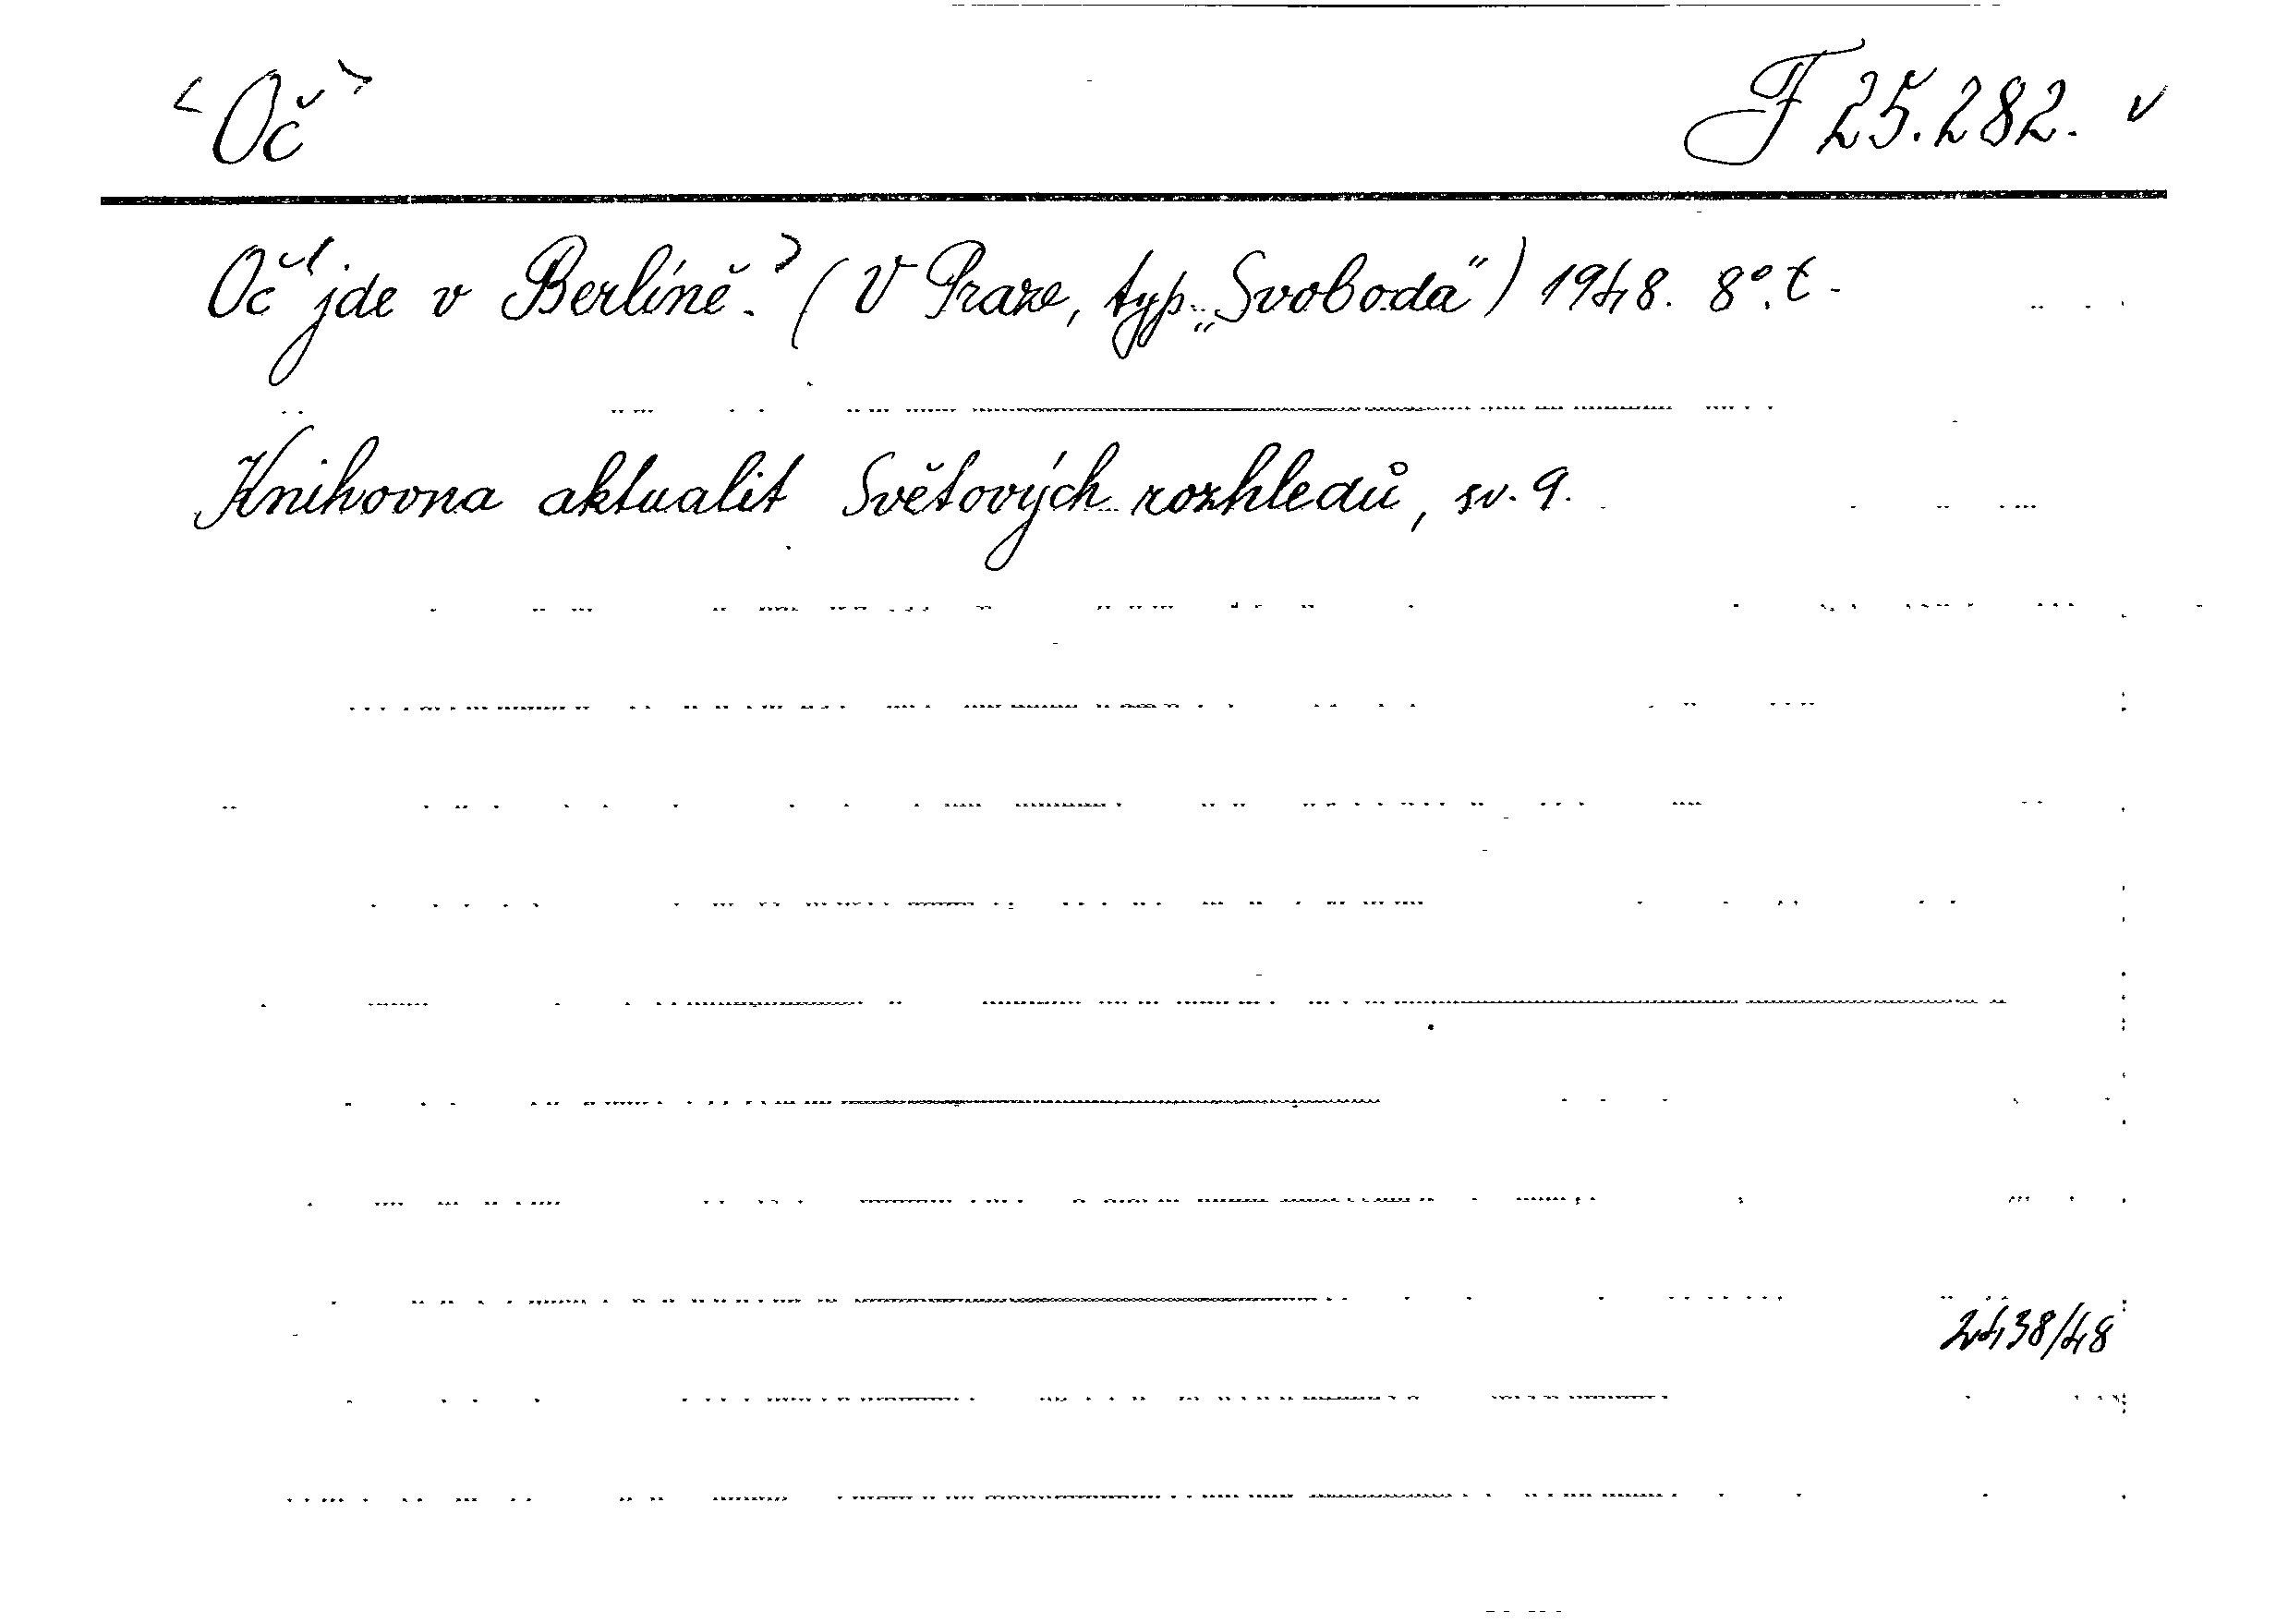 <Oč> F 25.282. v
Oč jde v Berlíně? (V Praze, typ. „Svoboda") 1948. 8°. t.
Knihovna aktualit Světových rozhledů, sv. 9.
2438/48